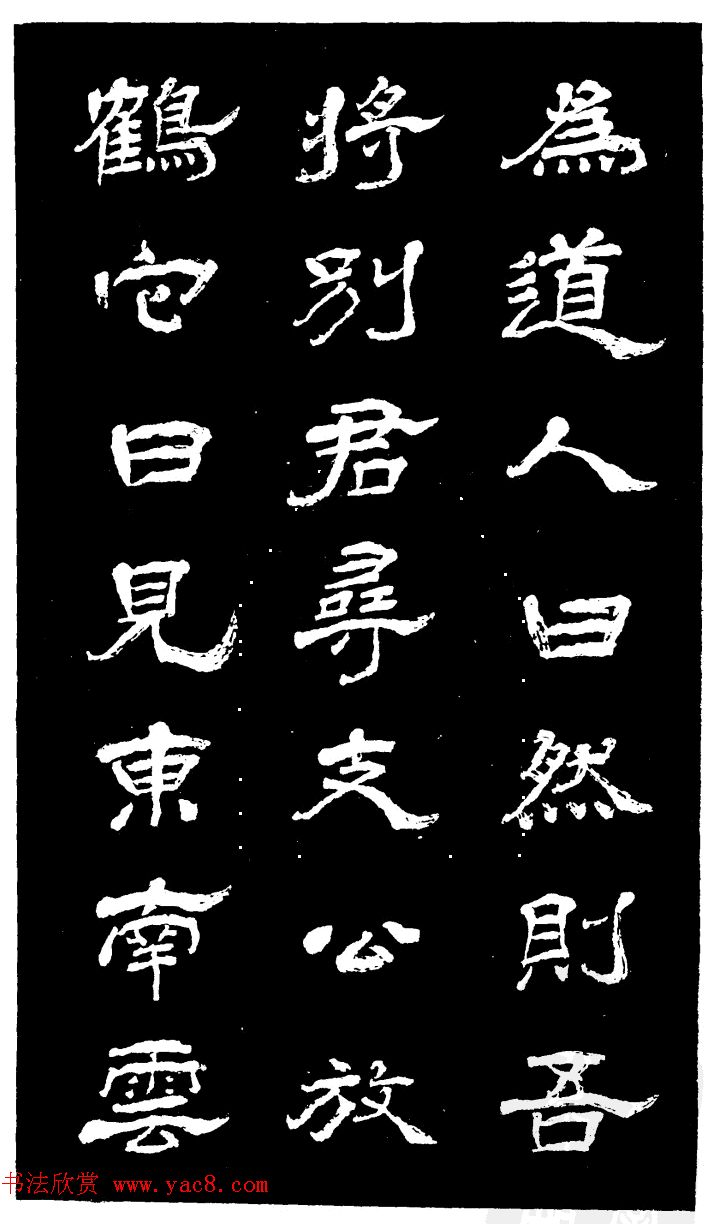 為道人曰然則吾
將別君尋支公放
鶴它日見東南雲
书法欣赏 www.yac8.com